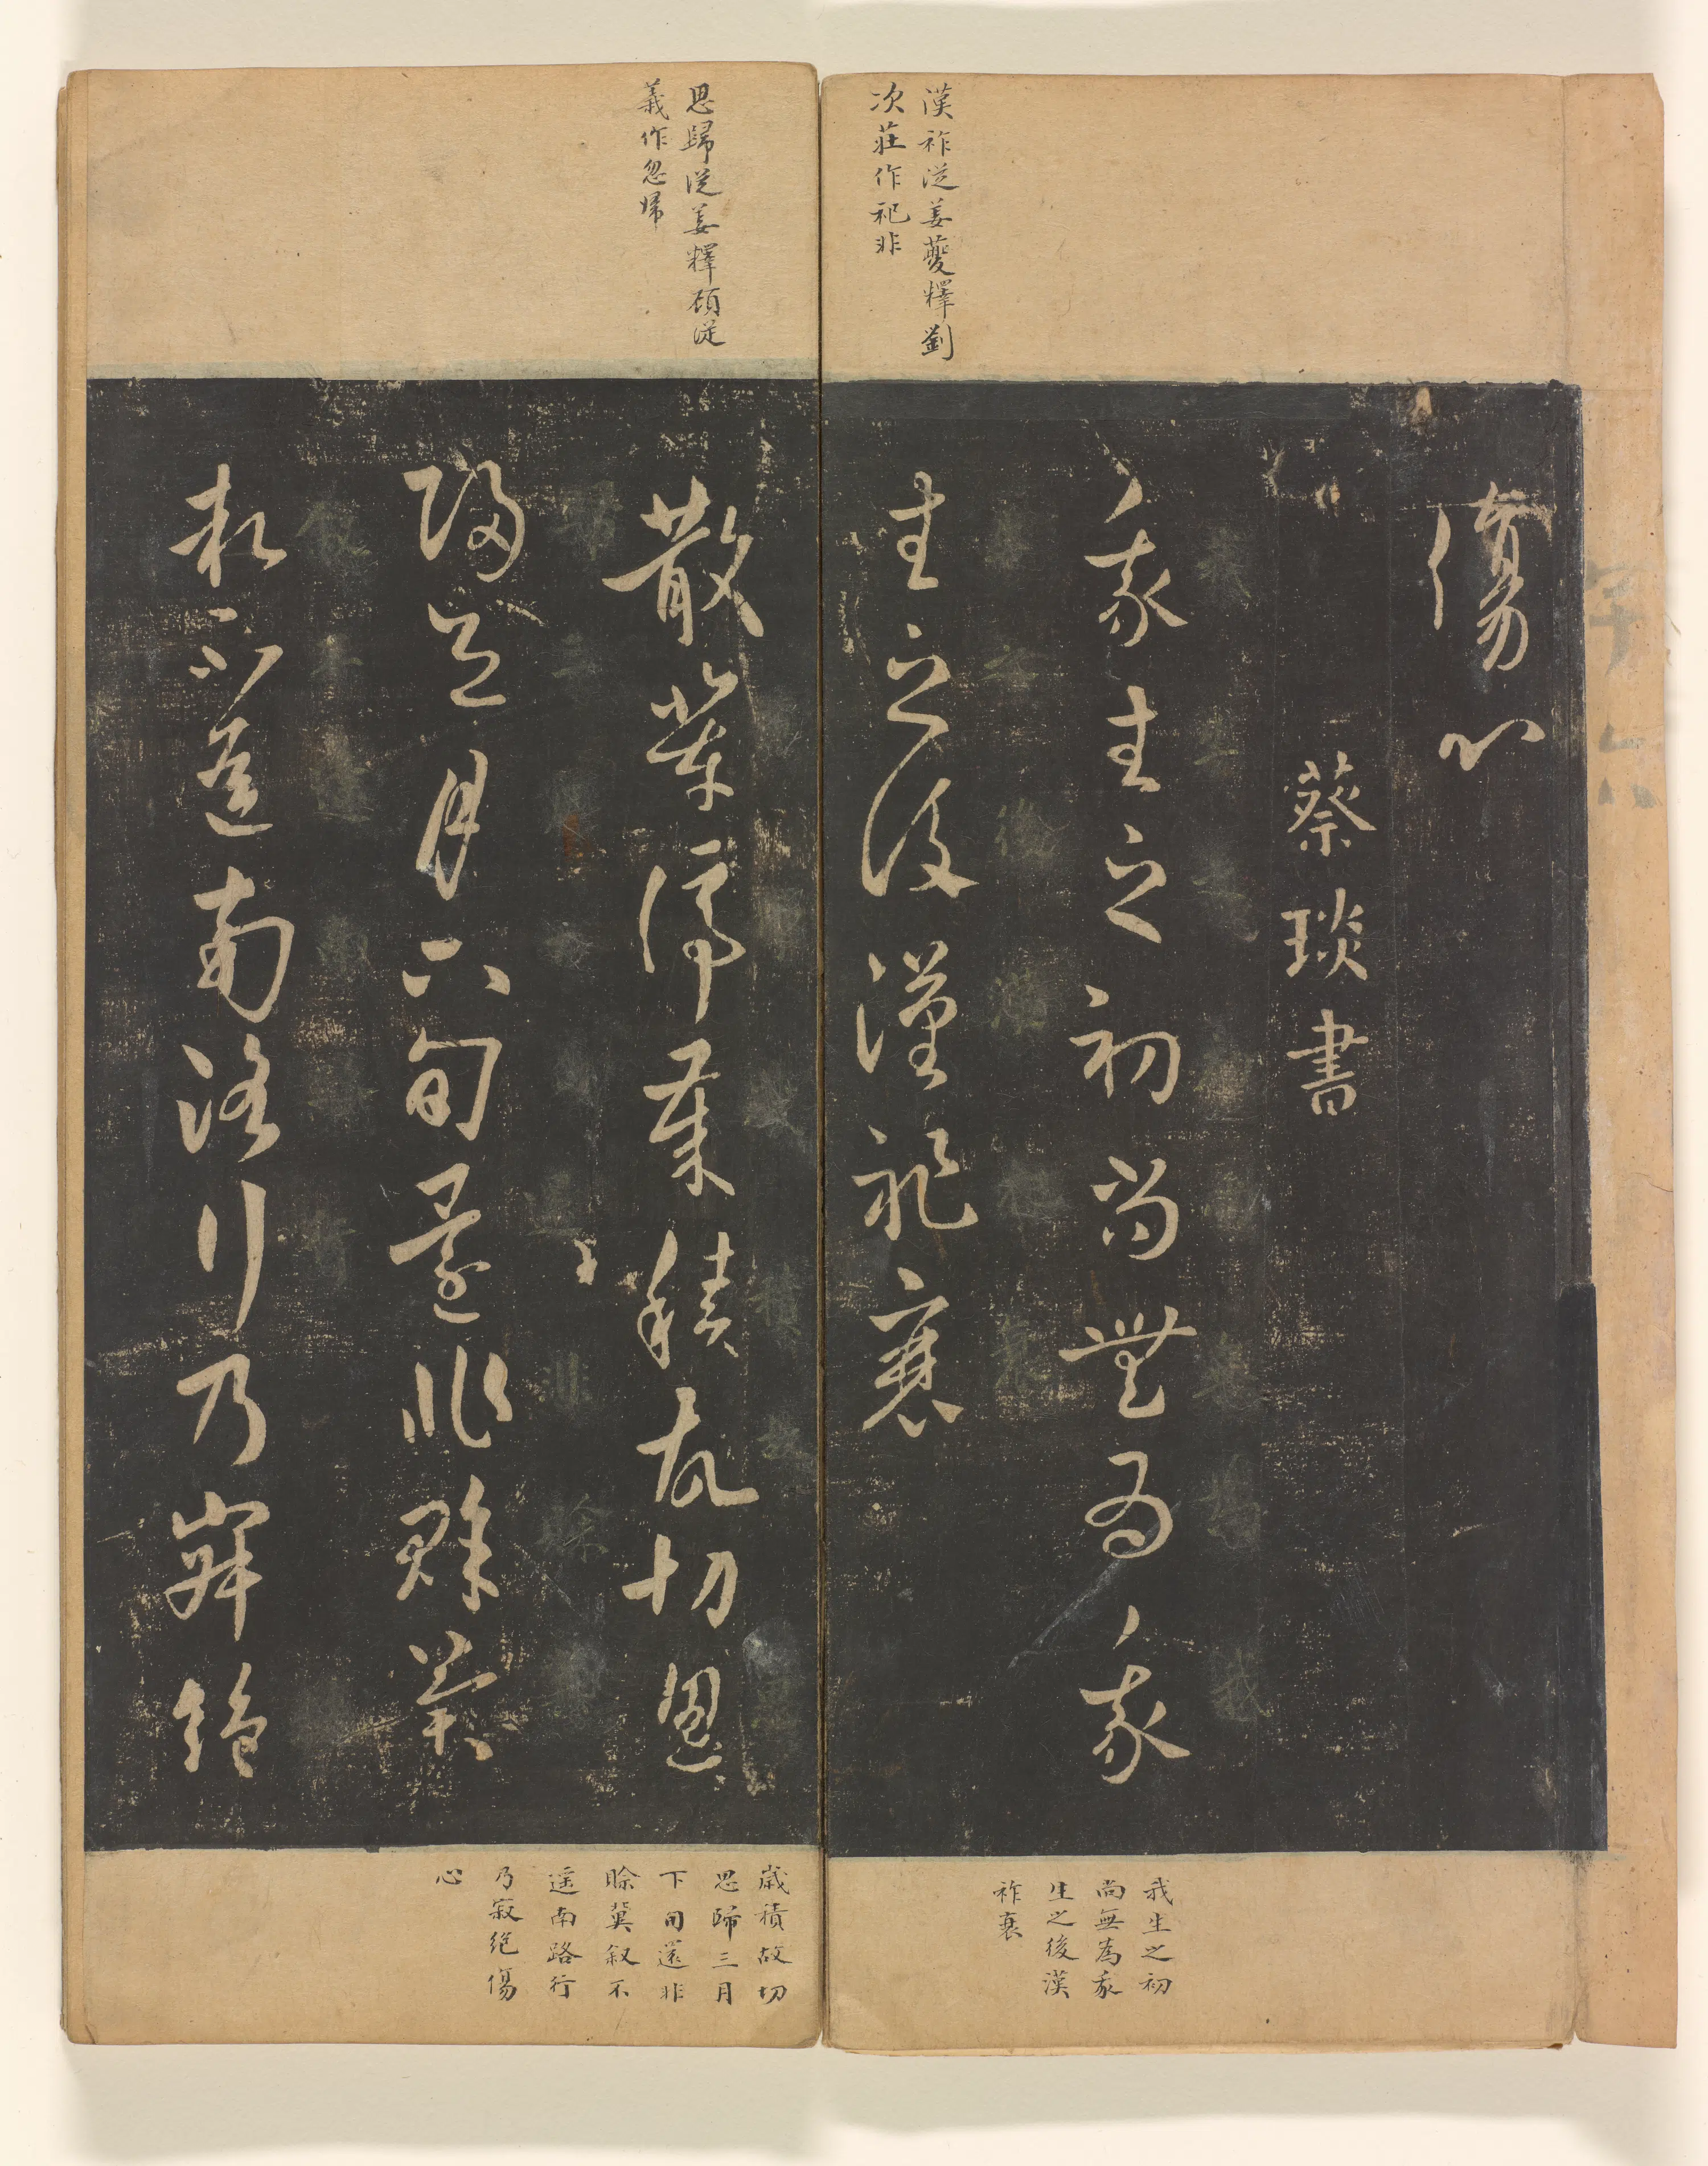 漢祚從姜夔釋劉
次莊作祀非
傷心
蔡琰書
我生之初尚無為我
生之後漢祚衰
我生之初
尚無為我
生之後漢
祚衰
思歸從姜釋頋從
義作忽歸
散停歲積故切思
歸三月下旬還非賒冀
叙不遥南路行乃寂絕
歲積故切
思歸三月
下旬還非
賒冀叙不
遥南路行
乃寂絕傷
心